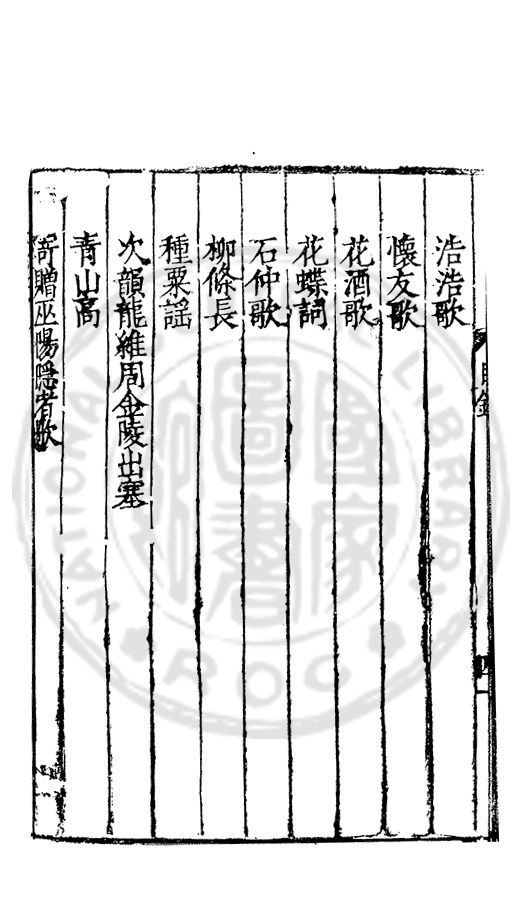 浩浩歌
懷友歌
花酒歌
花蝶詞
石仲歌
柳條長
種粟謠
次韻龍維周金陵出塞
青山高
寄贈巫陽隱者歌
國家圖書館
NATIONAL LIBRARY
ROC